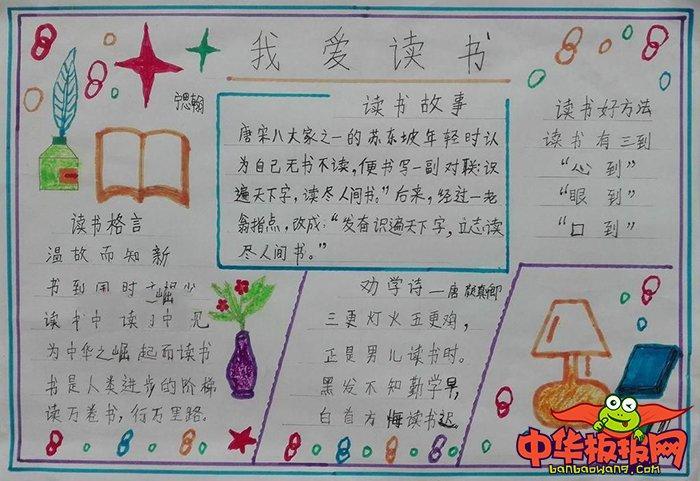 我爱读书
读书故事
唐宋八大家之一的苏东坡年轻时认
为自己无书不读，便书写一副对联：识
遍天下字，读尽人间书。”后来，经过一老
翁指点，改成：“发奋识遍天下字，立志读
尽人间书。”
读书好方法
读书有三到
“心到”
“眼到”
“口到”
读书格言
温故而知新
书到用时 少
读书中读 中见
为中华之崛起而读书
书是人类进步的阶梯
读万卷书，行万里路。
劝学诗—唐 颜真卿
三更灯火五更鸡，
正是男儿读书时。
黑发不知勤学早，
白首方悔读书迟。
中华板报网
banbaowang.com